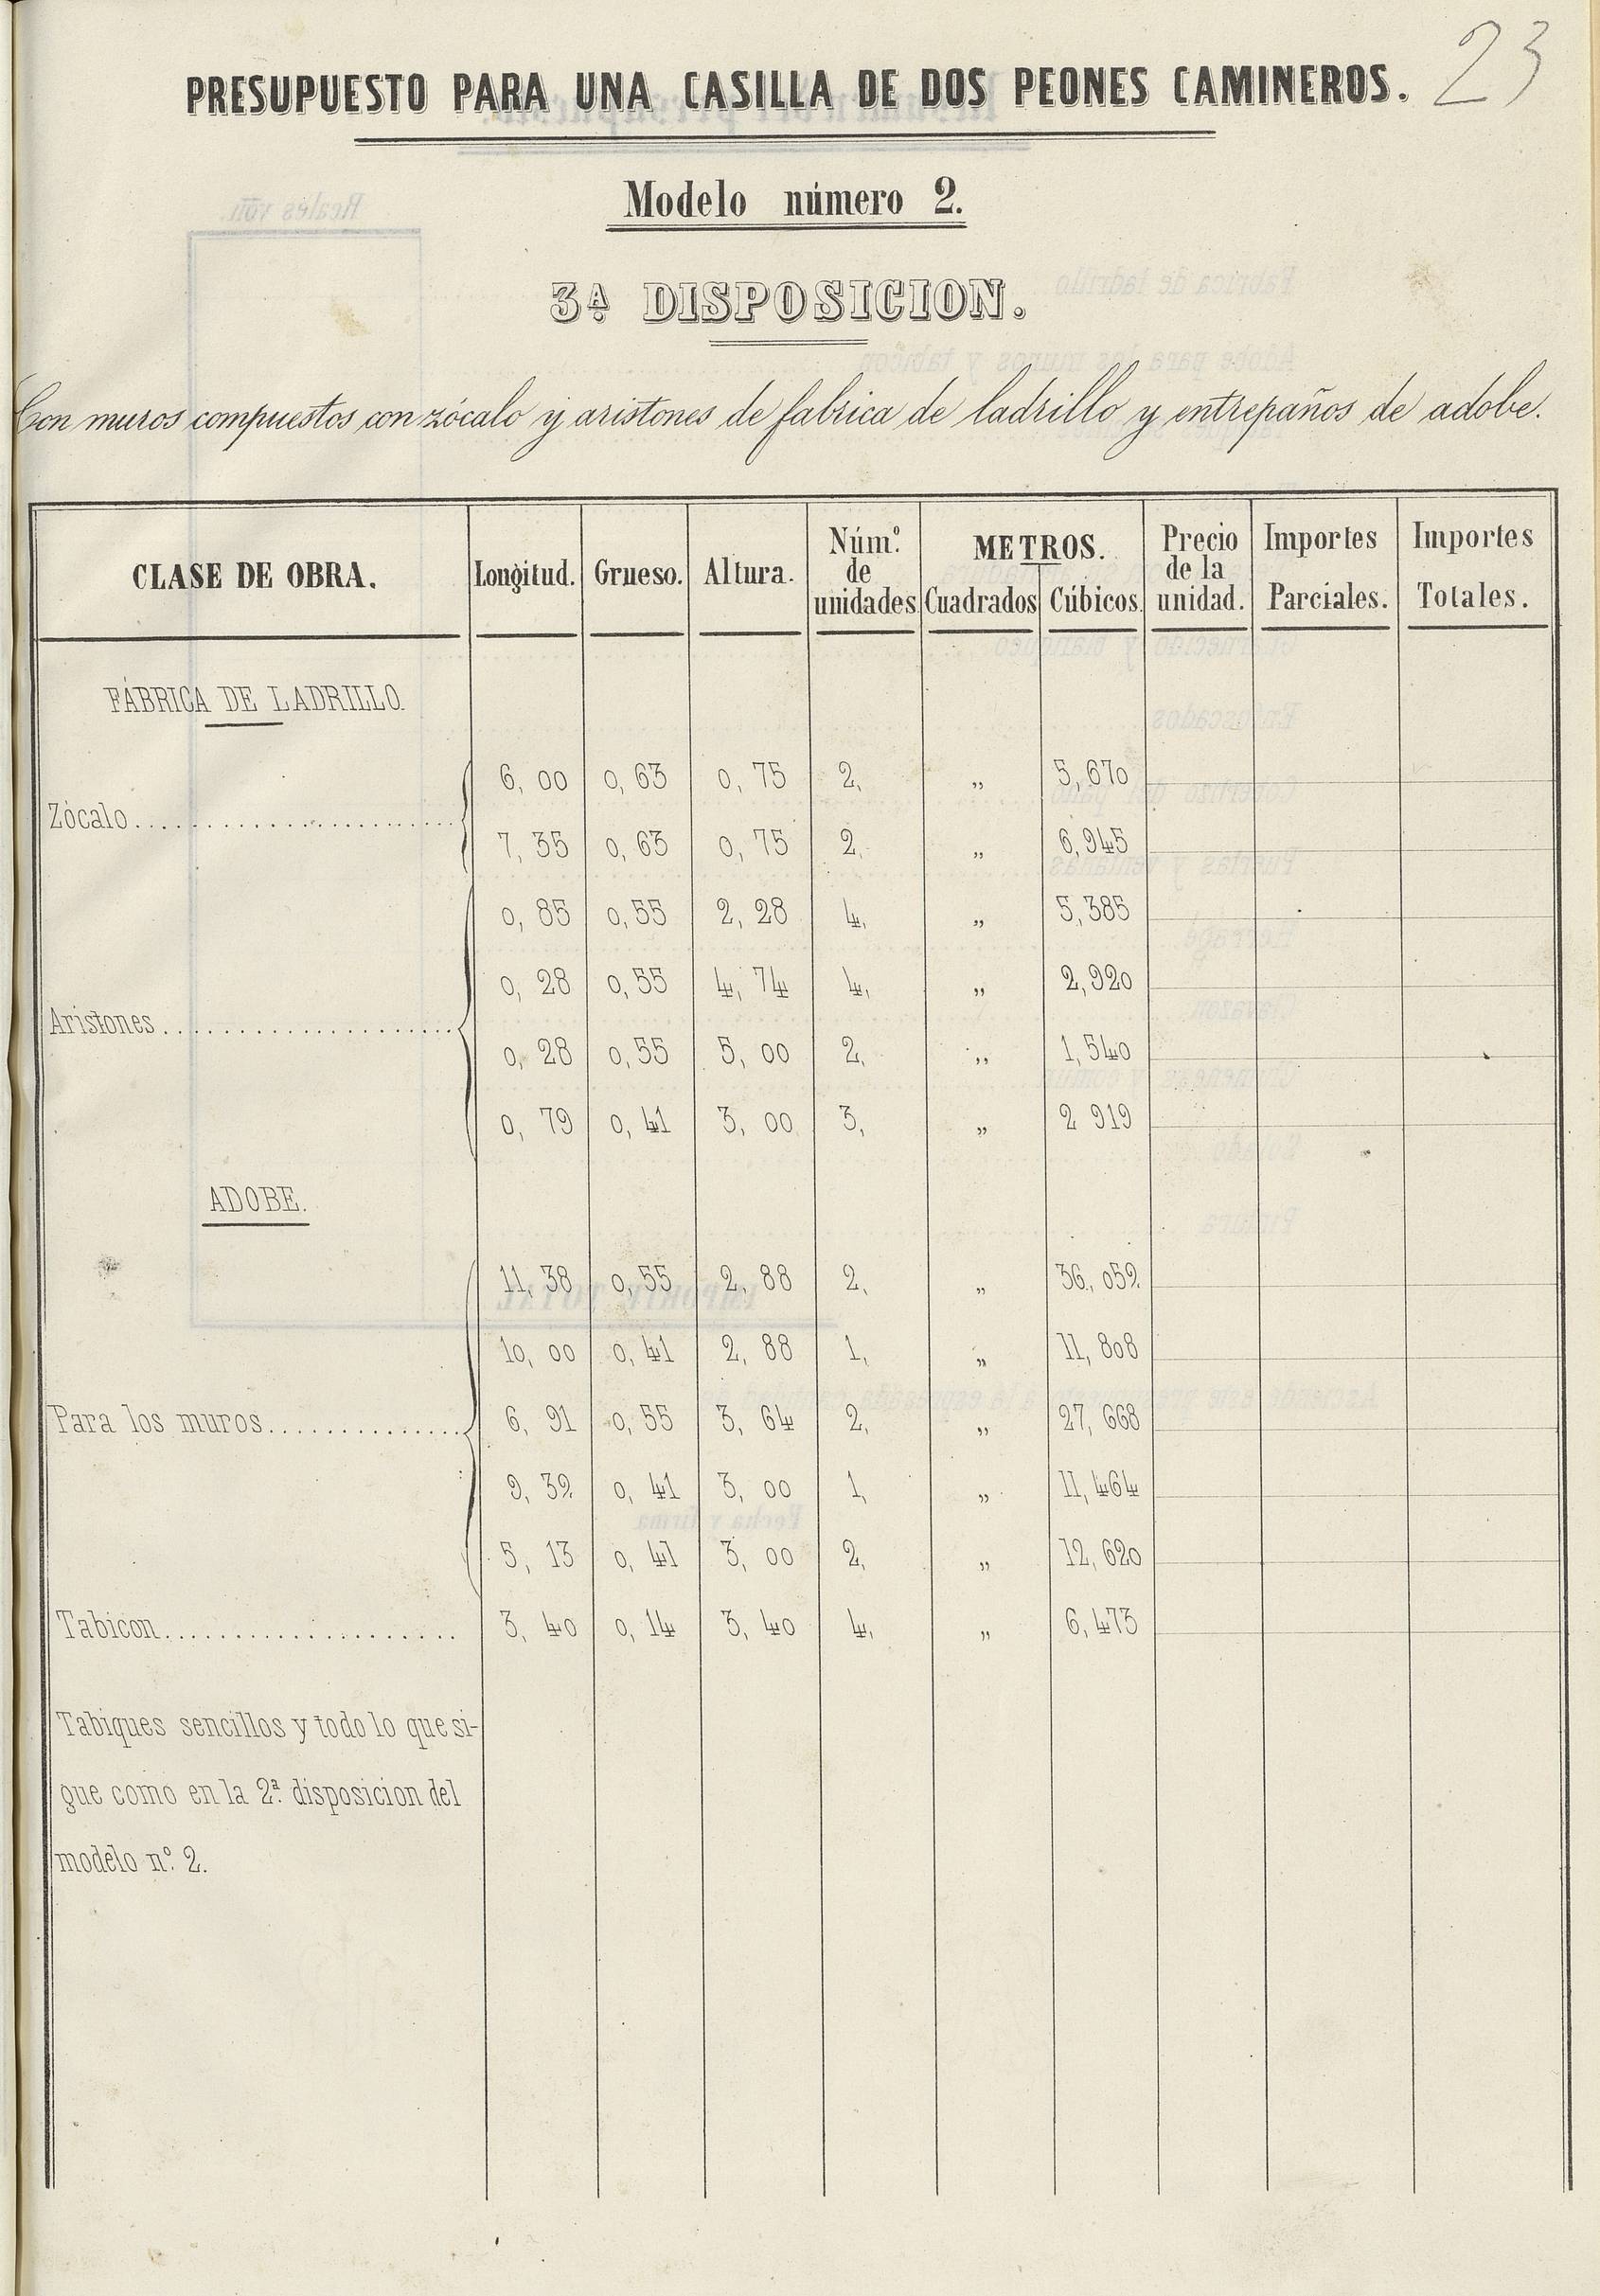 23
PRESUPUESTO PARA UNA CASILLA DE DOS PEONES CAMINEROS.
Modelo número 2.
3ª DISPOSICION.
Con muros compuestos con zócalo y aristones de fabrica de ladrillo y entrepaños de adobe.
CLASE DE OBRA. Longitud. Grueso. Altura. Núm.º de unidades METROS. Cuadrados Cúbicos. Precio de la unidad. Importes Parciales. Importes Totales.
FÁBRICA DE LADRILLO.
6, 00 0, 63 0, 75 2, „ 5, 670
Zócalo
7, 35 0, 63 0, 75 2, „ 6, 945
0, 85 0, 55 2, 28 4, „ 5, 385
0, 28 0, 55 4, 74 4, „ 2, 920
Aristones
0, 28 0, 55 5, 00 2, „ 1, 540
0, 79 0, 41 3, 00 3, „ 2 919
ADOBE.
11, 38 0, 55 2, 88 2, „ 36, 052
10, 00 0, 41 2, 88 1, „ 11, 808
Para los muros 6, 91 0, 55 3, 64 2, „ 27, 668
9, 32 0, 41 3, 00 1, „ 11, 464
5, 13 0, 41 3, 00 2, „ 12, 620
Tabicon 3, 40 0, 14 3, 40 4, „ 6, 473
Tabiques sencillos y todo lo que si-
gue como en la 2ª disposicion del
modelo nº. 2.